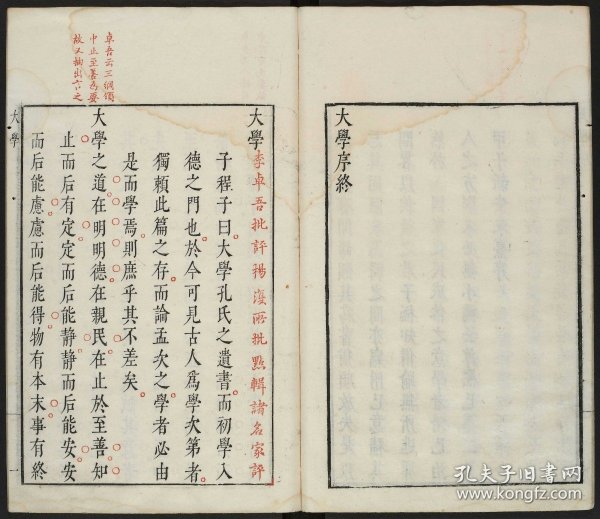 大學序終
卓吾云三綱領
中止至善為要
故又抽出言之
大學 李卓吾批評 楊復所批點 輯諸名家評
子程子曰大學孔氏之遺書而初學入
德之門也於今可見古人爲學次第者
獨賴此篇之存而論孟次之學者必由
是而學焉則庶乎其不差矣
大學之道在明明德在親民在止於至善知
止而后有定定而后能靜靜而后能安安
而后能慮慮而后能得物有本末事有終
大學
一
孔夫子旧书网
www.kongfz.com